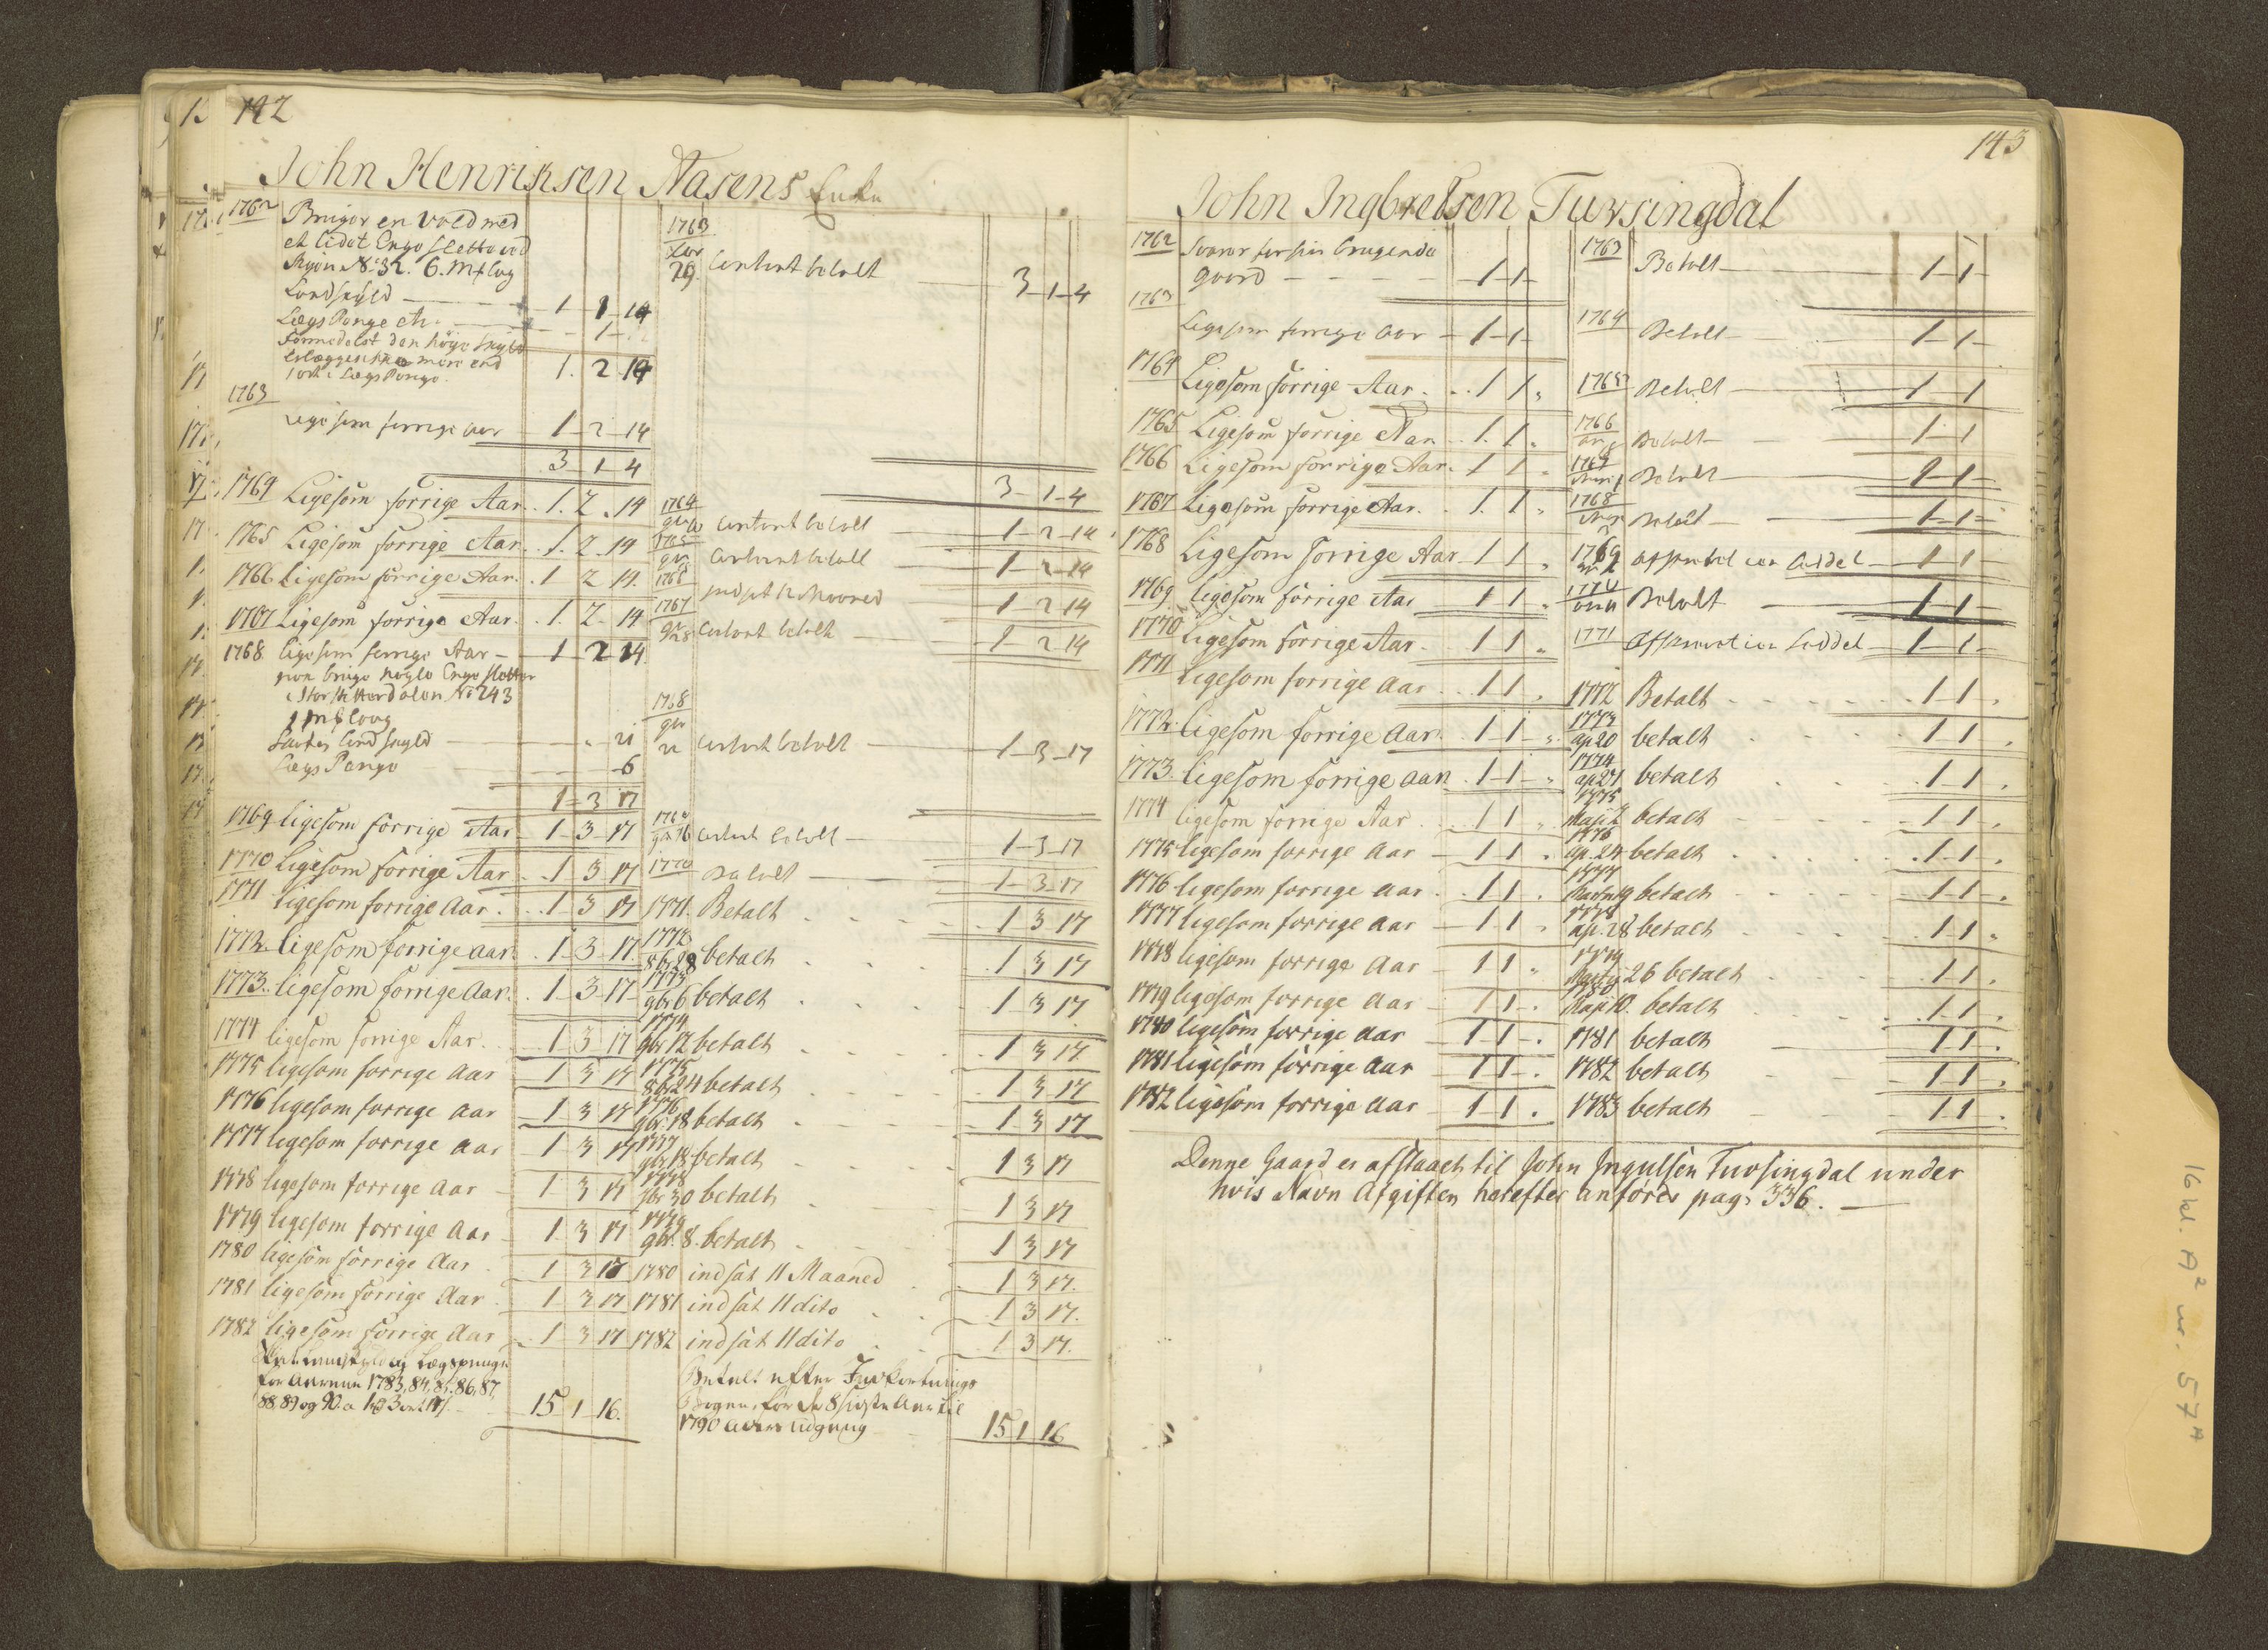 142
John Henriksen Aasens Enke
1762 Bruger en Vold med
et lidet Enge Slette ved
No 32. 6. Mk lav
Landskyld 1 1 14
Lægs Penge etc. 1
Formedelst den høye Skyld
erlægges ikke mere end
1 ort i Lægs Penge. 1. 2 14
1763
Ligesom forrige Aar 1 2 14
3 1 4
1764 Ligesom forrige Aar 1. 2. 14
1765 Ligesom forrige Aar 1. 2 14
1766 Ligesom forrige Aar. 1 2 14.
1767 Ligesom forrige Aar. 1. 2 14
1768 ligesom forrige Aar 1 2 14
bruge nogle Enge Sletter
No 243
1 mk laug
Land skyld
Lægs Penge 6
1 3 17
1769 ligesom forrige Aar 1 3 17
1770 Ligesom forrige Aar 1 3 17
1771 ligesom forrige Aar. 1 3 17
1772. ligesom forrige aar. 1 3 17.
1773. ligesom forrige Aar. 1 3 17
1774 ligesom forrige Aar. 1 3 17
1775 ligesom forrige Aar 1 3 17
1776 ligesom forrige aar 1 3 17
1777 ligesom forrige aar 1 3 17
1778 ligesom forrige Aar 1 3 17
1779 ligesom forrige Aar 1 3 17
1780 ligesom forrige Aar 1 3 17
1781 ligesom forrige Aar 1 3 17
1782 ligesom forrige Aar 1 3 17
og Lægspenge
for Aarene 1783, 84, 85, 86, 87,
88, 89 og 90. a 1 3 ort 17 s. 15 1 16.
1763
29 contant betalt 3 1 4
3 1 4
1764
contant betalt 1 2 14
1765
contant betalt 1 2 14
1766 indsat 12 Maaned 1 2 14
1767
contant betalt 1 2 14
1768
contant betalt 1 3 17
1769
16 contant betalt 1 3 17
1770 Betalt 1 3 17
1771. Betalt 1 3 17
1772
8br 28 betalt 1 3 17
1773
9br 6 betalt 1 3 17
1774
9br 12 betalt 1 3 17
1775
8br 24 betalt 1 3 17
1776
9br. 18 betalt 1 3 17
1777
9br 18 betalt 1 3 17
1778
30 betalt 1 3 17
1779
9br. 8. betalt 1 3 17
1780 indsat 11 Maaned 1 3 17.
1781 indsat 11 dito 1 3 17.
1782 indsat 11 dito 1 3 17.
Betalt efter
Bogen, for de 8 sidste Aar til
1790 Aars udgang 15 1 16
143
John Ingbretsen Tursingdal
1762 Svarer for sin brugende
gaard 1 1
1763
Ligesom forrige Aar 1 1
1764
Ligesom forrige Aar. 1 1
1765 Ligesom forrige Aar 1. 1.
1766 Ligesom forrige Aar. 1 1
1767 Ligesom forrige Aar. 1. 1
1768
Ligesom forrige Aar 1 1
1769 ligesom forrige Aar 1 1
1770 Ligesom forrige Aar. 1 1
1771
ligesom forrige Aar 1 1
1772. ligesom forrige Aar. 1 1
1773. ligesom forrige aar 1 1
1774 ligesom forrige Aar 1 1
1775 ligesom forrige Aar 1 1
1776 ligesom forrige aar 1 1
1777 ligesom forrige aar 1 1
1778 ligesom forrige Aar 1 1
1779 ligesom forrige Aar 1 1
1780 ligesom forrige aar 1 1
1781 ligesom forrige Aar 1 1
1782 ligesom forrige Aar 1 1
1763 Betalt 1 1
1764 Betalt 1 1
1765 Betalt 1 1
1766 Betalt 1 1
1767 Betalt 1 1
1768 Betalt 1 1
1769 Seddel 1 1
1770 Betalt 1 1
1771 Seddel 1 1
1772 Betalt 1 1
1773
ap 20 betalt 1 1
1774
ap 27 betalt 1 1
1775
Maji betalt 1 1
1776
ap. 24 betalt 1 1
1777
19 betalt 1 1
1778
ap. 28 betalt 1 1
1779
Martij 26 betalt 1 1
1780
Maji 10. betalt 1 1
1781 betalt 1 1
1782 betalt 1 1
1783 betalt 1 1
Denne Gaard er afstaaet til John Ingulsen Tursingdal under
hvis Navn Afgiften herefter anføres pag: 336.
16 kl. A² nr. 57 A